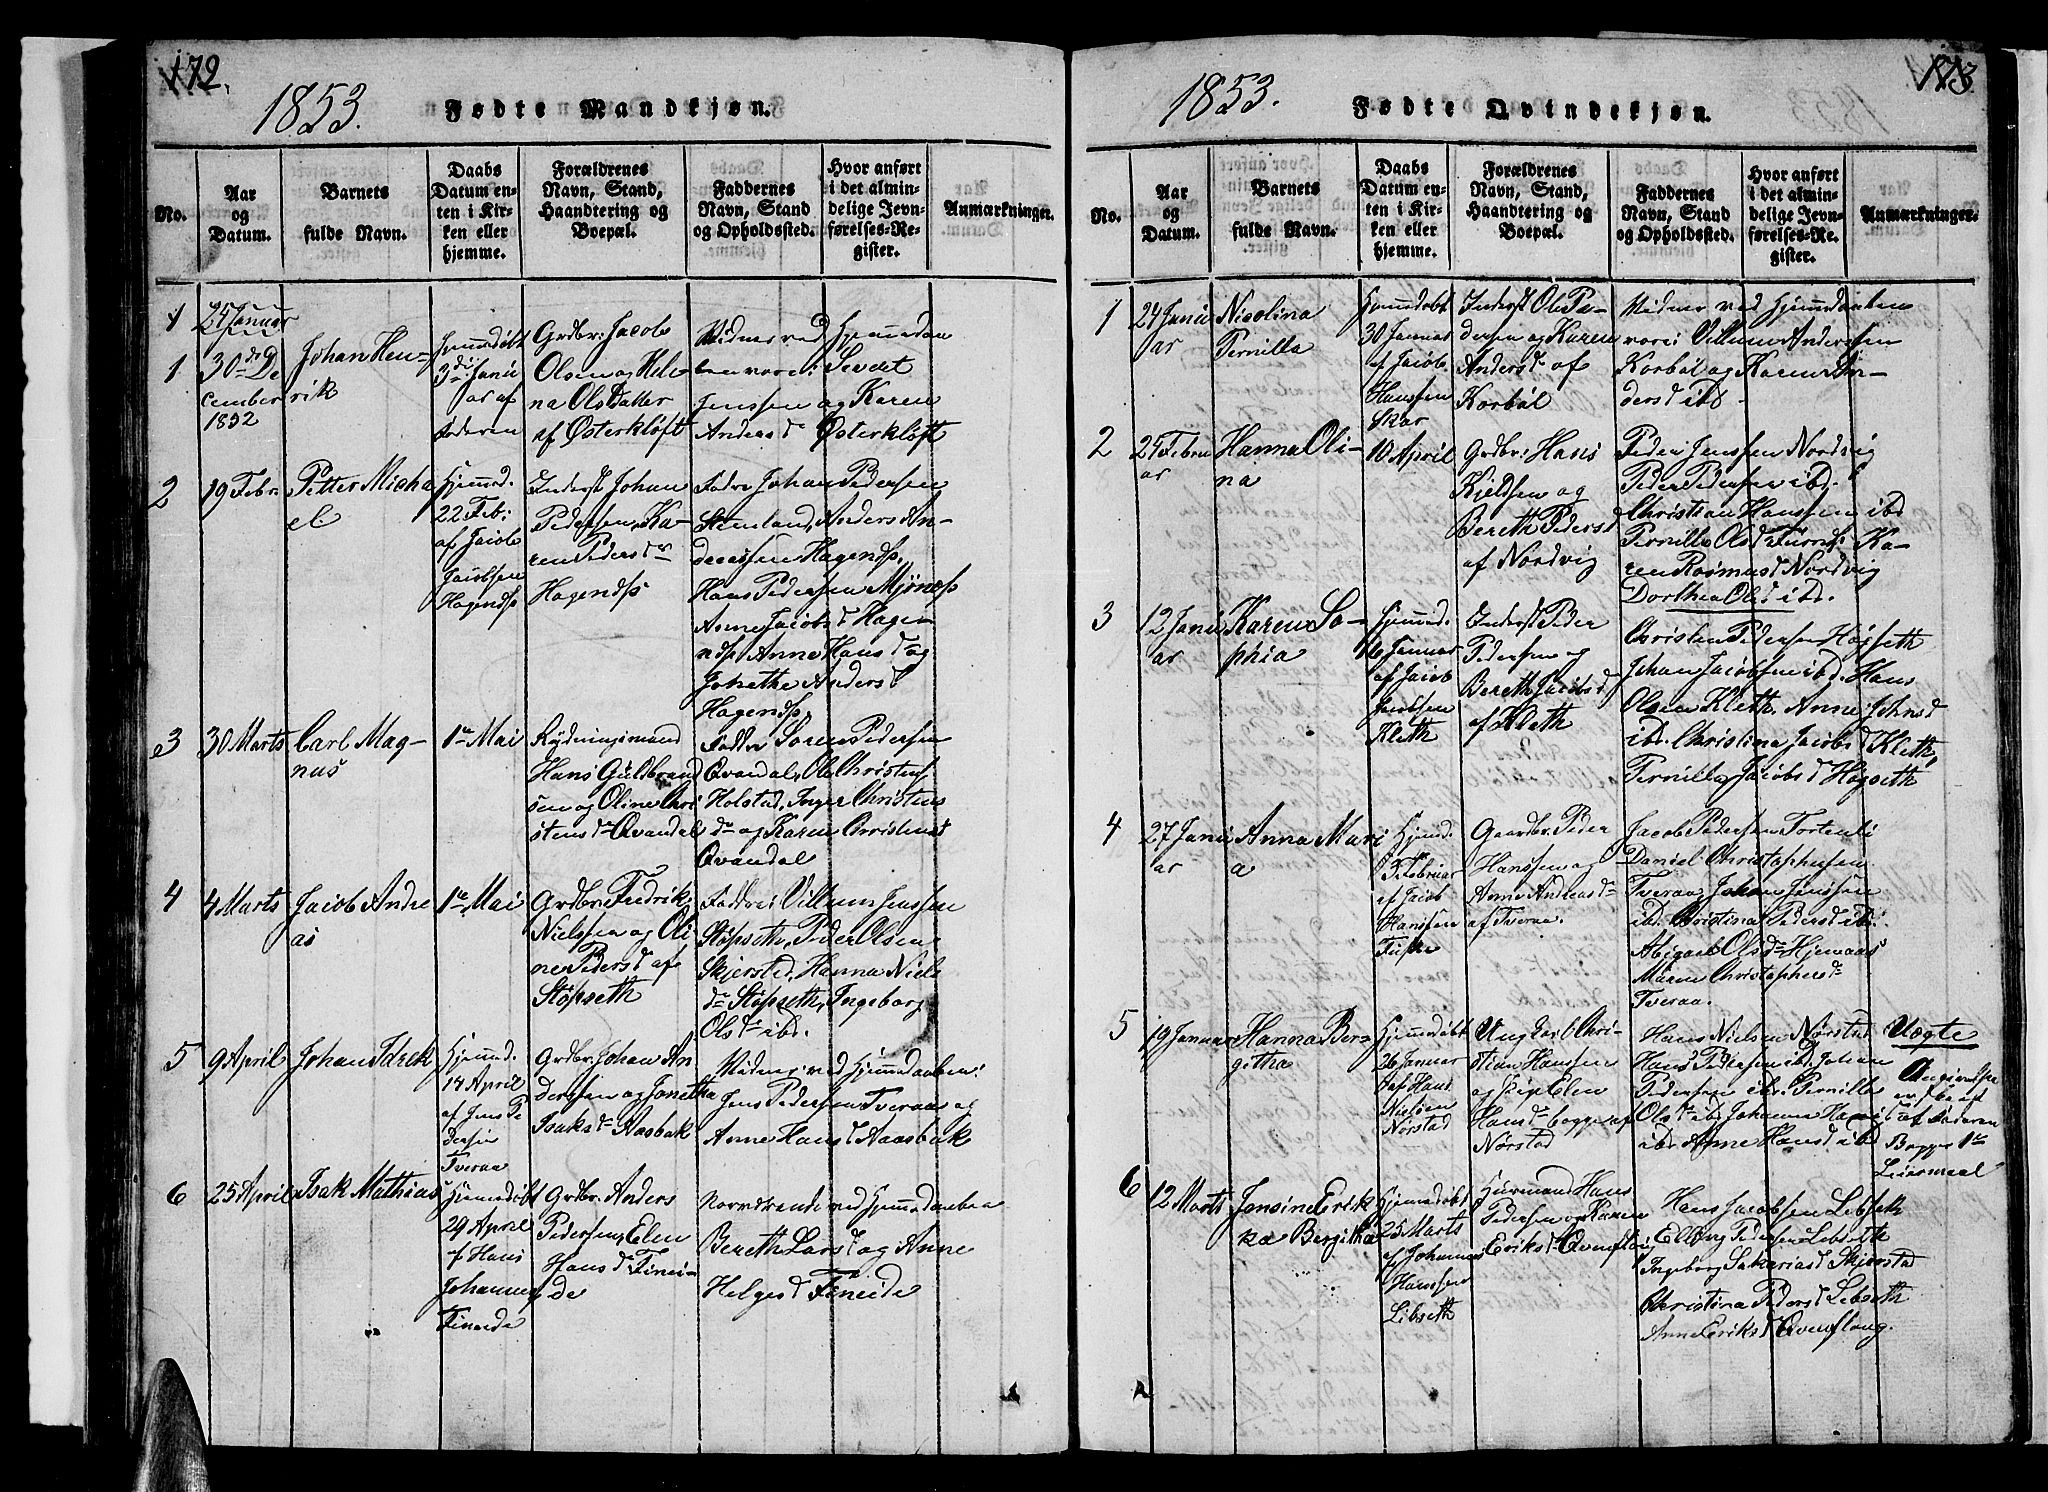 172.
1853.
Fødte Mandkjøn.
No.
Aar og Datum.
Barnets fulde Navn.
Daabs Datum enten i Kirken eller hjemme.
Forældrenes Navn, Stand, Haandtering og Boepæl.
Faddernes Navn, Stand og Opholdssted.
Hvor anført i det almindelige Jevnførelses-Register.
Anmarkninger.
1
24 Januar
1
30 De
cember
1852
Johan Hen-
rik
3 Janu
ar af
Grdbr: Jacob
Olsen og Hele-
na Olsdatter
af Østerkløft
Vidner ved Hjemmedaa
ben vare: Severt
Jenssen og Karen
Anders d Østerkløft
2
19 Febr
Petter Micha
el
Hjemmd.
22 Feb:
af Jacob
Jacobsen
Inderst Johan
Pedersen, Ka-
ren Peders dr
Johan Pedersen
Anders An-
derssen
Hans Pedersen
Anne Jacobs d
Anne Hans d og
Jonetha Anders d
3
30 Marts
Carl Mag-
nus
1te Mai
Rydningsmand
Hans Guldbrand
sen og Oline Chri
stens d Qvandal
Faddr Soren Pedersen
Qvandal, Ole Christens
Holstad, Inger Christens
dr og Karen Christens d
Qvandal
4
4 Marts
Jacob Andre
as
1te Mai
Grdbr: Fredrik
Nielssen og Oli
ne Peders d af
Støpseth
Faddre: Villum Jenssen
Støpseth, Peder Olsen
Skjerstad, Hanna Niels
dr Støpseth, Ingeborg
Ols dr ibd.
5
9 April
Johan Idrek
Hjemmd.
14 April
af Jens Pe
dersen
Tveraa
Grdbr: Johan An
derssen og Jonetha
Isaks dr Aasbak
Vidner ved Hjemmdaaben:
Jens Pedersen Tveraa og
Anne Hans d Aasbak
6
25 April
Isak Mathias
Hjemmedøbt
29 April
af Hans
Johannes
Fineide
Grdbr: Anders
Pedersen, Elen
Hans d Finei-
de
Nærværende ved Hjemmedaaben
Bereth Lars d og Anne
Helges d Fineide
173
1853.
Fødte Qvindekjøn.
No.
Aar og Datum.
Barnets fulde Navn.
Daabs Datum enten i Kirken eller hjemme.
Forældrenes Navn, Stand, Haandtering og Boepæl.
Faddernes Navn, Stand og Opholdssted.
Hvor anført i det almindelige Jevnførelses-Register.
Anmarkninger.
1
24 Janu
ar
Nicolina
Pernilla
Hjemmdøbt
30 Januar
af Jacob
Hanssen
Skar
Inderst Ole Pe-
dersen og Karen
Anders d af
Korbøl
Vidner ved Hjemmdaaben
vare: Villum Anderssen
Korbøl og Karen An-
ders d ibd.
2
25 Febru
ar
Hanna Oli-
na
10 April
Grdbr: Hans
Kjeldsen og
Bereth Peders d
af Nordvig
Peder Jenssen Nordvig
Peder Pedersen ibd.
Christian Hanssen ibd
Pernilla Ols d Ka-
ren Rasmus d Nordvig
Dorthea Ols d ibd.
3
12 Janu
ar
Karen So-
phia
Hjemmd.
16 Januar
af Jacob
Jacobsen
Kleth
Inderst Peder
Pedersen og
Bereth Jacobs d
af Kleth
Christen Pedersen Høgseth
Johan Jacobsen ibd. Hans
Olsen Kleth, Anne Johns d
ibd. Christina Jacobs d Kleth,
Pernilla Jacobs d Høgseth
4
27 Janu
ar
Anna Mari
a
Hjemd.
3 Februar
af Jacob
Hanssen
Gaardbr. Peder
Hanssen og
Anne Andreas dr
af Tveraa.
Jacob Pedersen
Daniel Christophersen
Tveraa, Johan Jenssen
ibd. Christina Peders d ibd:
Abigael Ols dr
Maren Christophers dr
Tveraa.
5
19 Januar
Hanna Ber-
githa
Hjemmdøbt
26 Januar
af Hans
Nielsen
Nørstad
Ungkarl Chri-
stian Hanssen
og Pige Elen
Hans dr begge af
Nørstad
Hans Nielsen Nørstad
Hans Pedersen ibd. Johan
Pedersen ibd. Pernilla
Ols dr ibd. Johanna Hans d
ibd. Anne Hans d ibd
Uægte
af Faderen
Begges 1te
Leiermaal
6
12 Marts
Jensine Erik
ka Bergitha
Hjemmedøbt
25 Marts
af Johannes
Hanssen
Libseth
Huusmand Hans
Pedersen og Karen
Eriks d Qvenflaag
Hans Jacobsen Libseth
Elling Pedersen Libseth
Ingeborg Sakarias d Skjerstad
Christina Peders d Libseth
Anne Eriks d Qvenflaug.